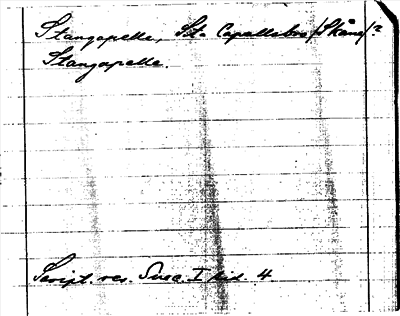 Stangapelle, St. Capellebro/Skåne/?
Stangapelle
Script. rer. Svec. I sid. 4.